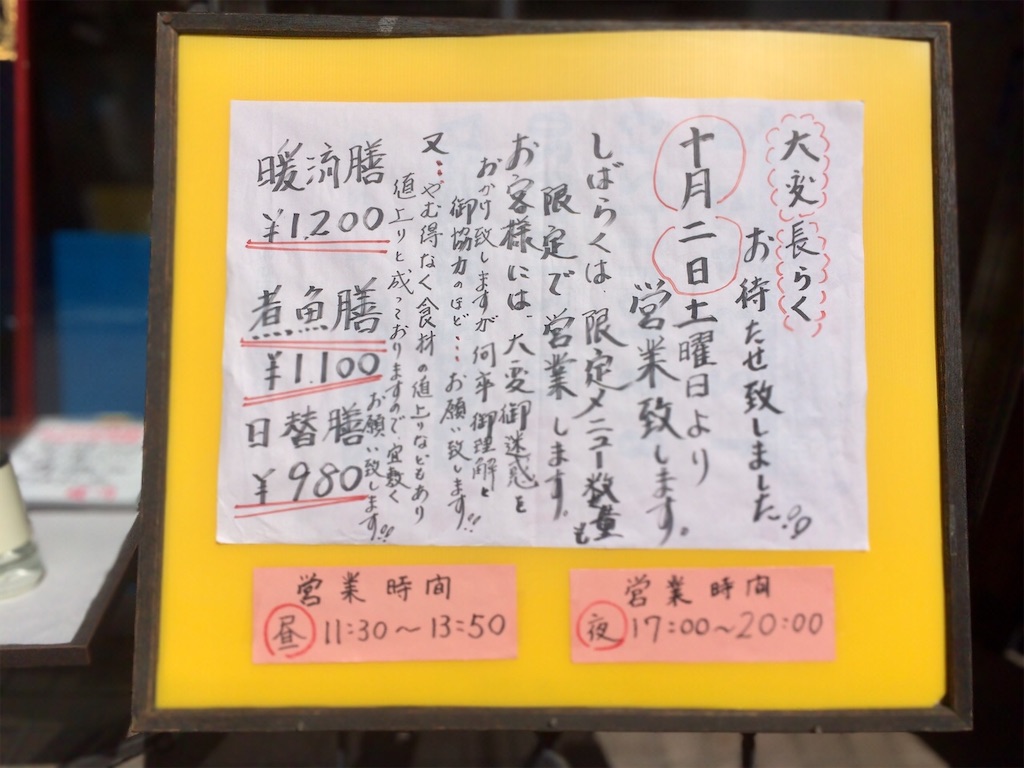 大変長らく
お待たせ致しました!!
十月二日土曜日より
営業致します。
しばらくは、限定メニュー数量も
限定で営業します。
お客様には、大変御迷惑を
おかけ致しますが何卒御理解と
御協力のほど…お願い致します!!
又…やむ得なく食材の値上りなどもあり
値上りと成っておりますので、宜敷く
お願い致します!!
暖流膳
¥1.200
煮魚膳
¥1.100
日替膳
¥980
営業時間
昼 11:30～13:50
営業時間
夜 17:00～20:00